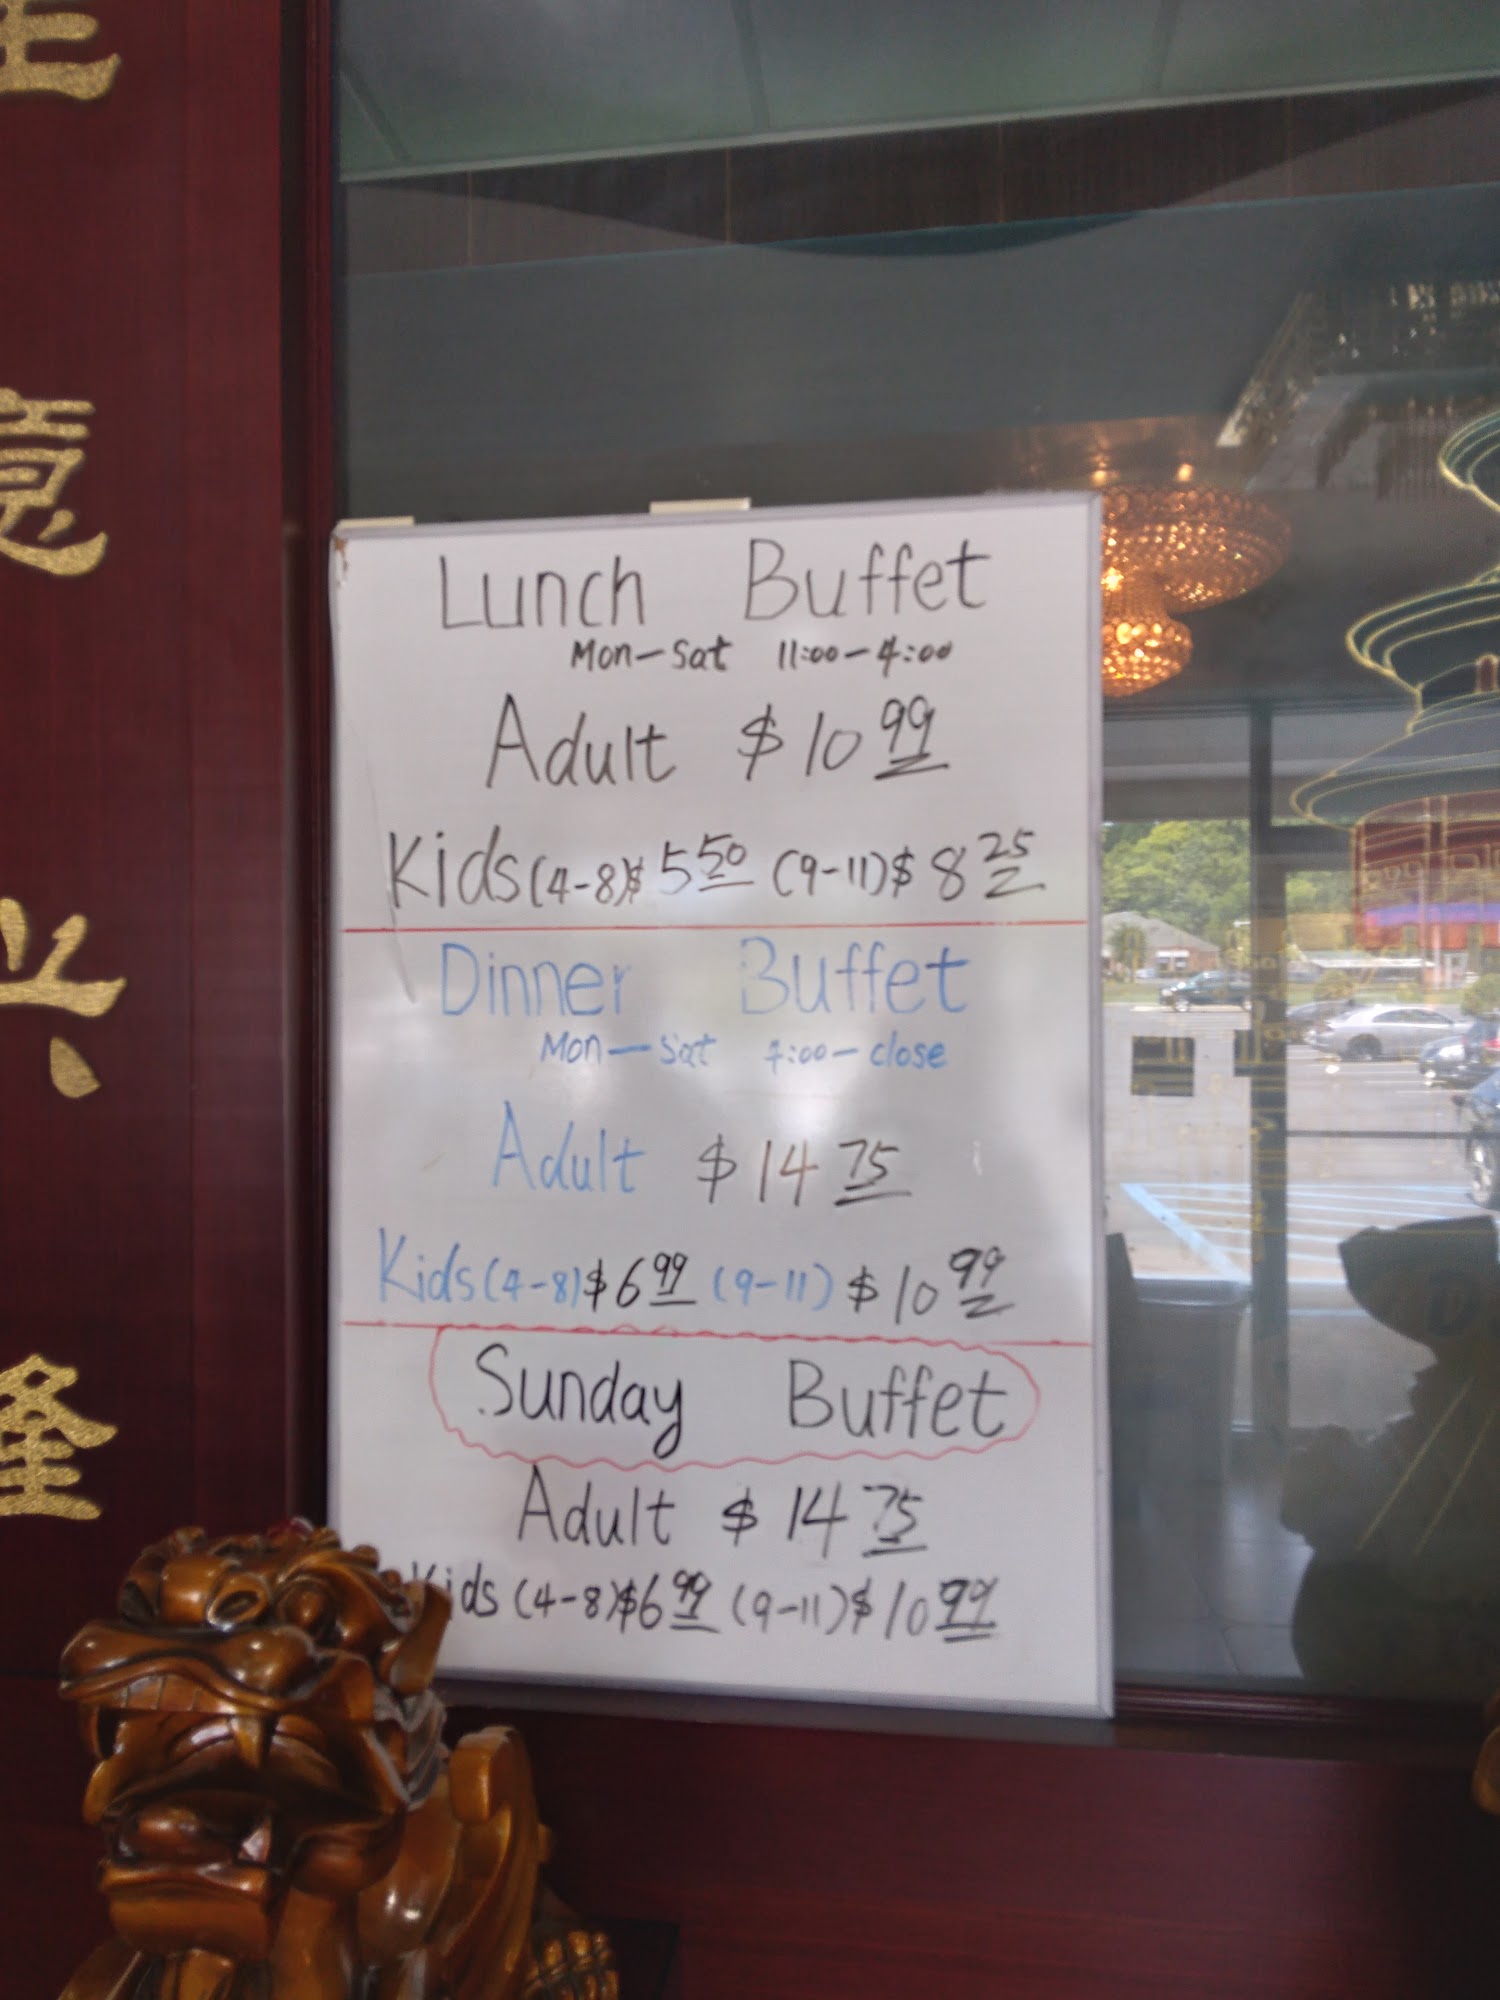 意
兴
隆
Lunch Buffet
Mon-Sat 11:00-4:00
Adult $10.99
Kids (4-8)$5.50 (9-11)$8.25
Dinner Buffet
Mon-Sat 4:00-close
Adult $14.75
Kids (4-8)$6.99 (9-11) $10.99
Sunday Buffet
Adult $14.75
Kids (4-8)$6.99 (9-11)$10.99